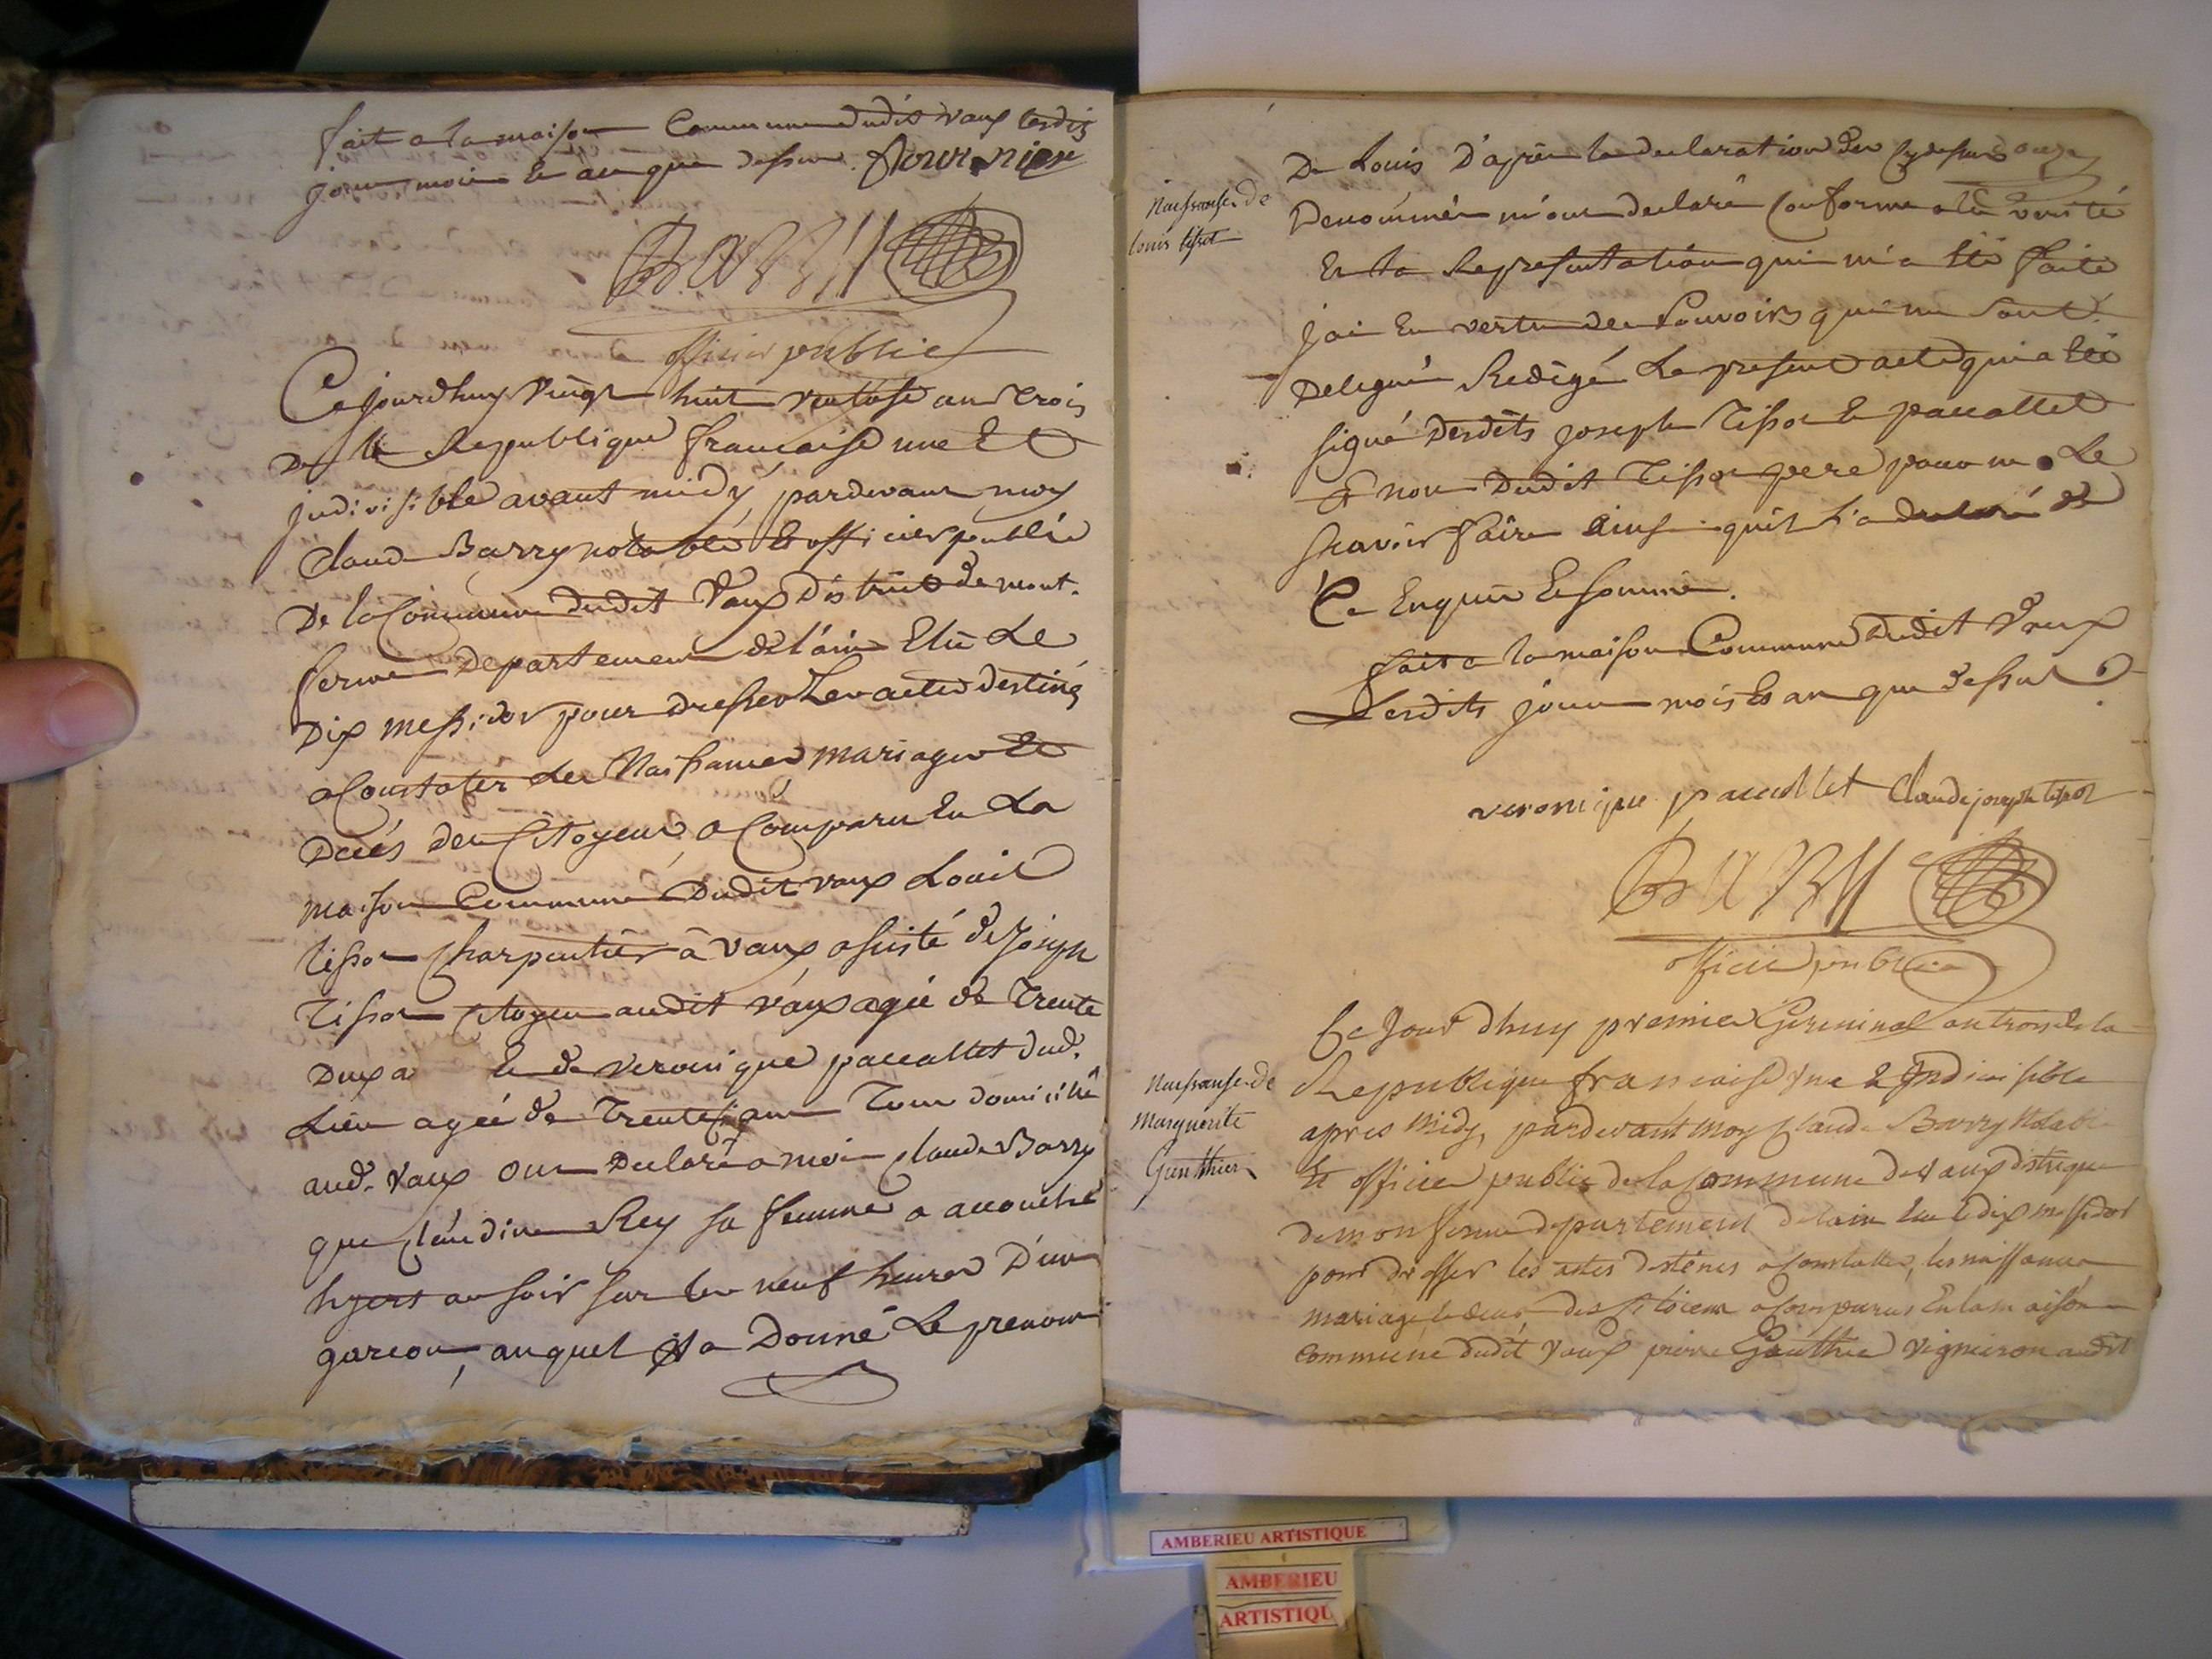 fait a la maison Commune dudit vaux lesdits
jour mois et an que dessus fournier
BARRY
officier public
Ce jourdhuy vingt huit ventose an trois
De la Republique francaise une Et
jndivisible avant midy, pardevant moy
Claude Barry notable Et officier public
De la Commune dudit Vaux District de mont-
ferme Departement de l'ain Elu Le
Dix messidor pour dresser Les actes destinés
a Constater les Naissances mariages Et
Decés des Citoyens, a Comparu En La
maison Commune Dudit vaux Louis
tissot Charpentier à vaux assisté de Joseph
Tissot Citoyen audit vaux agé de Trente
Deux a Et de veronique paccallet dud.
Lieu agée de Trente ans Tous domicilié
aud. vaux ont Declaré a moi Claude Barry
que Claudine Rey sa femme a accouché
hyers au soir sur les neuf heures D'un
garcon, auquel il a Donné Le prenom
Naissance de
louis tissot
De Louis D'après la declaration des cy dessus
Denommés m'ont declaré Conforme a la verité
Et la Representation qui m'a été faite
j'ai En vertu des Pouvoirs qui me sont
Delegués Redigé Le present acte qui a été
signé Desdits joseph Tissot Et paccallet
Et non Dudit Tissot pere pour ne Le
scavoir faire ainsi quil l'a declaré de
Ce Enquis Et sommé.
fait a la maison Commune dudit Vaux
Lesdits jour mois Et an que dessus
veronique paccallet Claude joseph tissot
BARRY
officier public
Naissance de
Marguerite
Gauthier
Ce Jour dhuy premier Germinal an trois de la
Republique francaise une Et Indivisible
apres Midy, pardevant moy Claude Barry Notable
Et officier public de la Commune de Vaux distrique
de monferme departement de lain Elu le dix messidor
pour dresser les actes destinés a Constatter, les naissances
mariage et deces, des sitoiens a Comparus En la maison
commune dudit Vaux pierre Gauthier vigneron audit
AMBERIEU ARTISTIQUE
AMBERIEU
ARTISTIQU